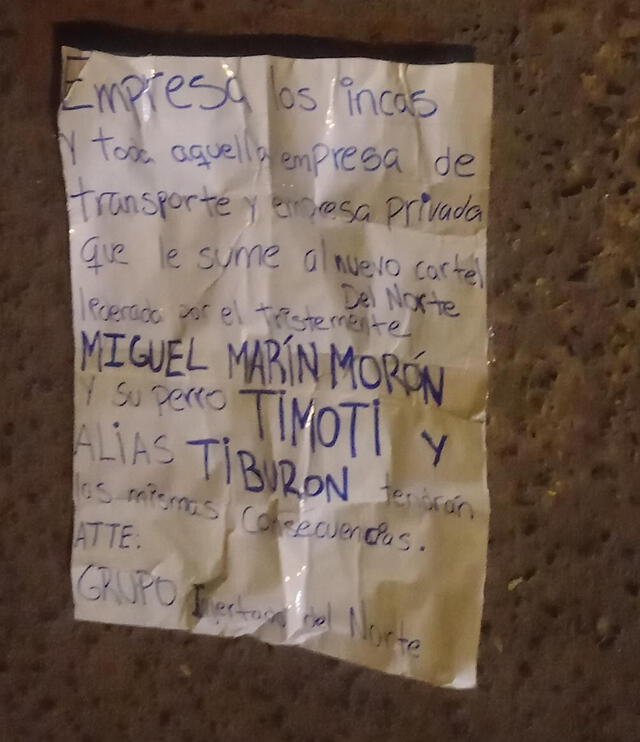 Empresa los incas
Y toda aquella empresa de
transporte y empresa privada
que le sume al nuevo cartel
Del Norte
lederado por el tristemente
MIGUEL MARÍN MORÓN
Y su perro TIMOTI y
ALIAS TIBURON tendrán
las mismas consecuencias.
ATTE:
GRUPO del Norte